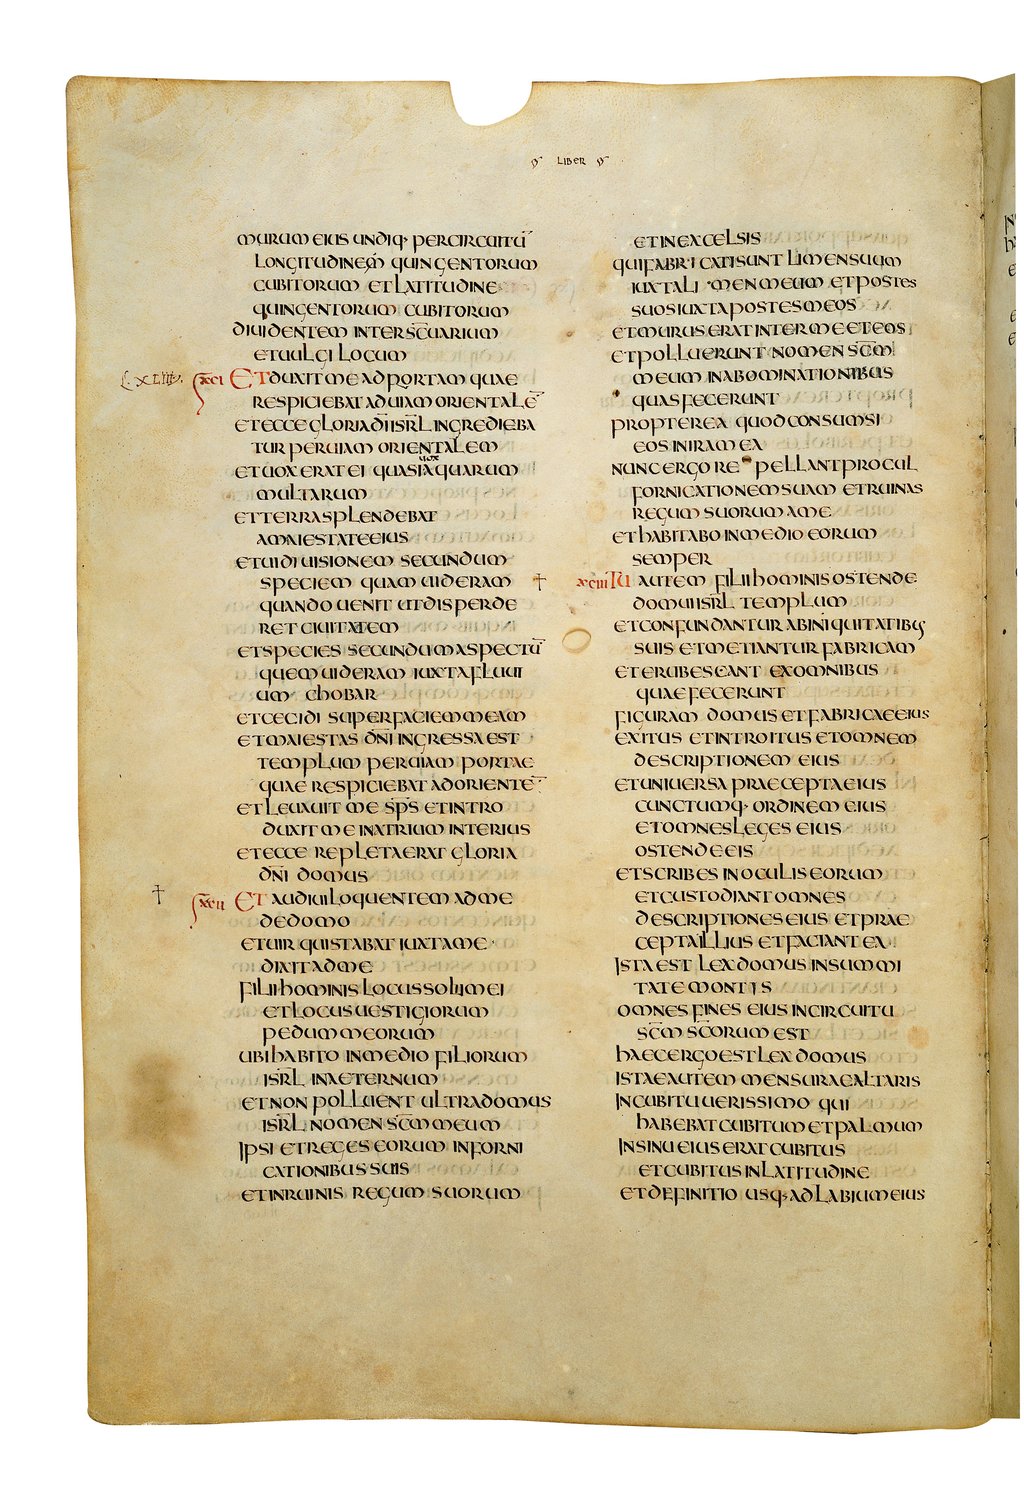 LIBER
MURUM EIUS UNDIQ· PER CIRCUITU¯
LONGITUDINEM QUINGENTORUM
CUBITORUM ET LATITUDINE
QUINGENTORUM CUBITORUM
DIUIDENTEM INTER SC̄UARIUM
ET UULGI LOCUM
C. XLIII.
XCI ET DUXIT ME AD PORTAM QUAE
RESPICIEBAT AD UIAM ORIENTALE¯
ET ECCE GLORIA DĪ ISRL̄ INGREDIEBA
TUR PER UIAM ORIENTALEM
UOX
ET UOX ERAT EI QUASI AQUARUM
MULTARUM
ET TERRA SPLENDEBAT
A MAIESTATE EIUS
ET UIDI UISIONEM SECUNDUM
SPECIEM QUAM UIDERAM
QUANDO UENIT UT DISPERDE
RET CIUITATEM
ET SPECIES SECUNDUM ASPECTU¯
QUEM UIDERAM IUXTA FLUUI
UM CHOBAR
ET CECIDI SUPER FACIEM MEAM
ET MAIESTAS DN̄I INGRESSA EST
TEMPLUM PER UIAM PORTAE
QUAE RESPICIEBAT AD ORIENTE¯
ET LEUAUIT ME SP̄S ET INTRO
DUXIT ME IN ATRIUM INTERIUS
ET ECCE REPLETA ERAT GLORIA
DN̄I DOMUS
XCII ET AUDIUI LOQUENTEM AD ME
DE DOMO
ET UIR QUI STABAT IUXTA ME
DIXIT AD ME
FILI HOMINIS LOCUS SOLII MEI
ET LOCUS UESTIGIORUM
PEDUM MEORUM
UBI HABITO IN MEDIO FILIORUM
ISRL̄ IN AETERNUM
ET NON POLLUENT ULTRA DOMUS
ISRL̄ NOMEN SC̄M MEUM
IPSI ET REGES EORUM IN FORNI
CATIONIBUS SUIS
ET IN RUINIS REGUM SUORUM
ET IN EXCELSIS
QUI FABRICATI SUNT LIMEN SUUM
IUXTA LIMEN MEUM ET POSTES
SUOS IUXTA POSTES MEOS
ET MURUS ERAT INTER ME ET EOS
ET POLLUERUNT NOMEN SC̄M
MEUM IN ABOMINATIONIBUS
QUAS FECERUNT
PROPTEREA QUOD CONSUMSI
EOS IN IRA MEA
NUNC ERGO REPELLANT PROCUL
FORNICATIONEM SUAM ET RUINAS
REGUM SUORUM A ME
ET HABITABO IN MEDIO EORUM
SEMPER
XCIII TU AUTEM FILI HOMINIS OSTENDE
DOMUI ISRL̄ TEMPLUM
ET CONFUNDANTUR AB INIQUITATIBUS
SUIS ET METIANTUR FABRICAM
ET ERUBESCANT EX OMNIBUS
QUAE FECERUNT
FIGURAM DOMUS ET FABRICAE EIUS
EXITUS ET INTROITUS ET OMNEM
DESCRIPTIONEM EIUS
ET UNIUERSA PRAECEPTA EIUS
CUNCTUMQ· ORDINEM EIUS
ET OMNES LEGES EIUS
OSTENDE EIS
ET SCRIBES IN OCULIS EORUM
ET CUSTODIANT OMNES
DESCRIPTIONES EIUS ET PRAE
CEPTA ILLIUS ET FACIANT EA
ISTA EST LEX DOMUS IN SUMMI
TATE MONTIS
OMNES FINES EIUS IN CIRCUITU
SC̄M SC̄ORUM EST
HAEC ERGO EST LEX DOMUS
ISTAE AUTEM MENSURAE ALTARIS
IN CUBITU UERISSIMO QUI
HABEBAT CUBITUM ET PALMUM
IN SINU EIUS ERAT CUBITUS
ET CUBITUS IN LATITUDINE
ET DEFINITIO USQ· AD LABIUM EIUS